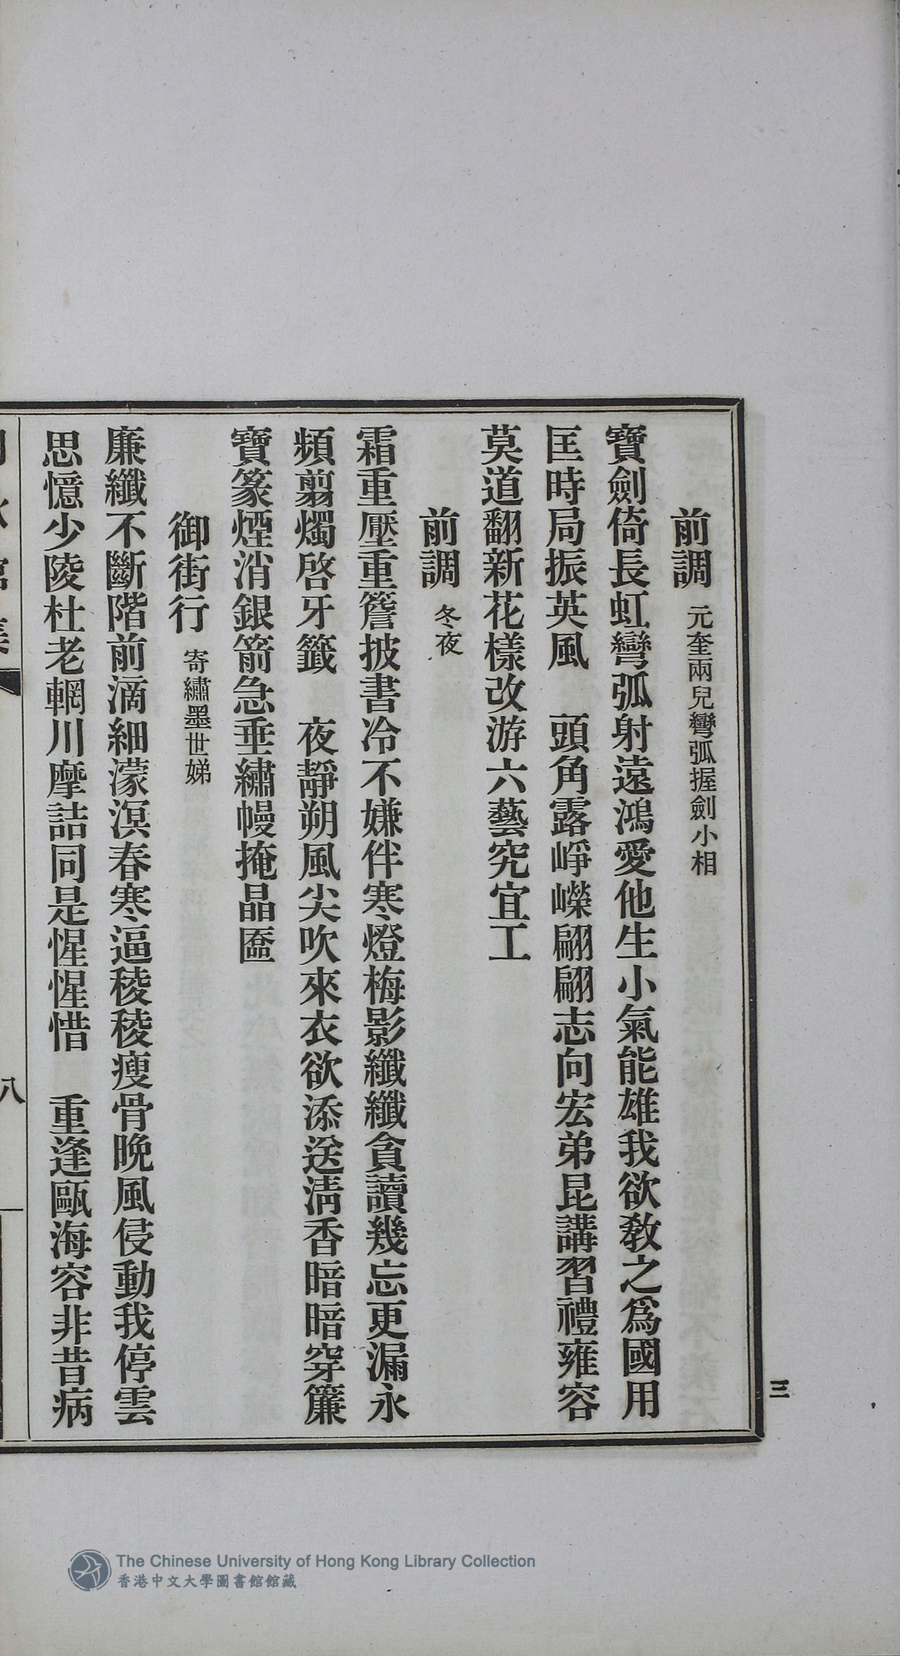 前調 元奎兩兒彎弧握劍小相
寶劍倚長虹彎弧射遠鴻愛他生小氣能雄我欲敎之爲國用
匡時局振英風　頭角露崢嶸翩翩志向宏弟昆講習禮雍容
莫道翻新花樣改游六藝究宜工
前調 冬夜
霜重壓重簷披書冷不嫌伴寒燈梅影纖纖貪讀幾忘更漏永
頻剪燭啓牙籤　夜靜朔風尖吹來衣欲添送淸香暗暗穿簾
寶篆煙消銀箭急垂繡幔掩晶匳
御街行 寄繡墨世娣
廉纖不斷階前滴細濛溟春寒逼稜稜瘦骨晚風侵動我停雲
思憶少陵杜老輞川摩詰同是惺惺惜　重逢甌海容非昔病
八
三
The Chinese University of Hong Kong Library Collection
香港中文大學圖書館館藏